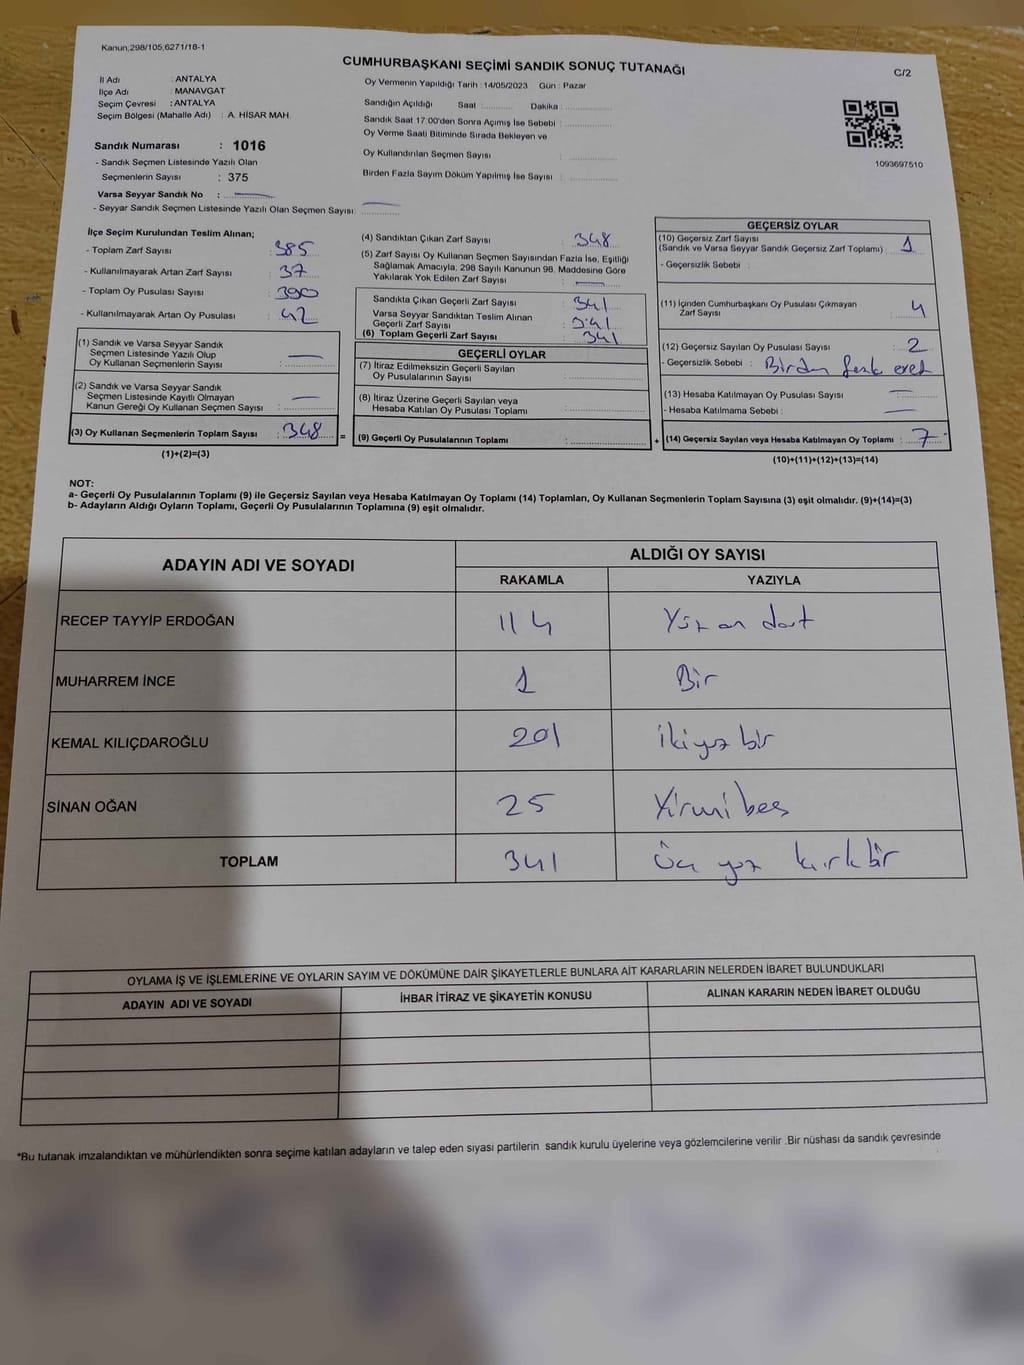 Kanun,298/105,6271/18-1
CUMHURBAŞKANI SEÇİMİ SANDIK SONUÇ TUTANAĞI
C/2
İl Adı : ANTALYA
İlçe Adı : MANAVGAT
Seçim Çevresi : ANTALYA
Seçim Bölgesi (Mahalle Adı) : A. HİSAR MAH.
Oy Vermenin Yapıldığı Tarih : 14/05/2023 Gün : Pazar
Sandığın Açıldığı Saat :.......... Dakika :..............
Sandık Saat 17:00'den Sonra Açımış İse Sebebi :..............
Oy Verme Saati Bitiminde Sırada Bekleyen ve
Oy Kullandırılan Seçmen Sayısı :..............
Birden Fazla Sayım Döküm Yapılmış İse Sayısı :..............
1093697510
Sandık Numarası : 1016
- Sandık Seçmen Listesinde Yazılı Olan
Seçmenlerin Sayısı : 375
Varsa Seyyar Sandık No : —
- Seyyar Sandık Seçmen Listesinde Yazılı Olan Seçmen Sayısı: —
İlçe Seçim Kurulundan Teslim Alınan;
- Toplam Zarf Sayısı : 385
- Kullanılmayarak Artan Zarf Sayısı : 37
- Toplam Oy Pusulası Sayısı : 390
- Kullanılmayarak Artan Oy Pusulası : 42
(1) Sandık ve Varsa Seyyar Sandık
Seçmen Listesinde Yazılı Olup
Oy Kullanan Seçmenlerin Sayısı : —
(2) Sandık ve Varsa Seyyar Sandık
Seçmen Listesinde Kayıtlı Olmayan
Kanun Gereği Oy Kullanan Seçmen Sayısı : —
(3) Oy Kullanan Seçmenlerin Toplam Sayısı : 348 =
(1)+(2)=(3)
(4) Sandıktan Çıkan Zarf Sayısı : 348
(5) Zarf Sayısı Oy Kullanan Seçmen Sayısından Fazla İse, Eşitliği
Sağlamak Amacıyla, 298 Sayılı Kanunun 98. Maddesine Göre
Yakılarak Yok Edilen Zarf Sayısı : —
Sandıkta Çıkan Geçerli Zarf Sayısı : 341
Varsa Seyyar Sandıktan Teslim Alınan
Geçerli Zarf Sayısı : 341
(6) Toplam Geçerli Zarf Sayısı : 341
GEÇERLİ OYLAR
(7) İtiraz Edilmeksizin Geçerli Sayılan
Oy Pusulalarının Sayısı :..............
(8) İtiraz Üzerine Geçerli Sayılan veya
Hesaba Katılan Oy Pusulası Toplamı :..............
(9) Geçerli Oy Pusulalarının Toplamı :.............. +
GEÇERSİZ OYLAR
(10) Geçersiz Zarf Sayısı
(Sandık ve Varsa Seyyar Sandık Geçersiz Zarf Toplamı) : 1
- Geçersizlik Sebebi :
(11) İçinden Cumhurbaşkanı Oy Pusulası Çıkmayan
Zarf Sayısı : 4
(12) Geçersiz Sayılan Oy Pusulası Sayısı : 2
- Geçersizlik Sebebi : Birden fazla evet
(13) Hesaba Katılmayan Oy Pusulası Sayısı : —
- Hesaba Katılmama Sebebi : —
(14) Geçersiz Sayılan veya Hesaba Katılmayan Oy Toplamı : 7
(10)+(11)+(12)+(13)=(14)
NOT:
a- Geçerli Oy Pusulalarının Toplamı (9) ile Geçersiz Sayılan veya Hesaba Katılmayan Oy Toplamı (14) Toplamları, Oy Kullanan Seçmenlerin Toplam Sayısına (3) eşit olmalıdır. (9)+(14)=(3)
b- Adayların Aldığı Oyların Toplamı, Geçerli Oy Pusulalarının Toplamına (9) eşit olmalıdır.
ADAYIN ADI VE SOYADI ALDIĞI OY SAYISI
RAKAMLA YAZIYLA
RECEP TAYYİP ERDOĞAN 114 Yüz on dört
MUHARREM İNCE 1 Bir
KEMAL KILIÇDAROĞLU 201 ikiyüz bir
SİNAN OĞAN 25 Yirmi beş
TOPLAM 341 Üç yüz kırk bir
OYLAMA İŞ VE İŞLEMLERİNE VE OYLARIN SAYIM VE DÖKÜMÜNE DAİR ŞİKAYETLERLE BUNLARA AİT KARARLARIN NELERDEN İBARET BULUNDUKLARI
ADAYIN ADI VE SOYADI İHBAR İTİRAZ VE ŞİKAYETİN KONUSU ALINAN KARARIN NEDEN İBARET OLDUĞU
*Bu tutanak imzalandıktan ve mühürlendikten sonra seçime katılan adayların ve talep eden siyasi partilerin sandık kurulu üyelerine veya gözlemcilerine verilir .Bir nüshası da sandık çevresinde